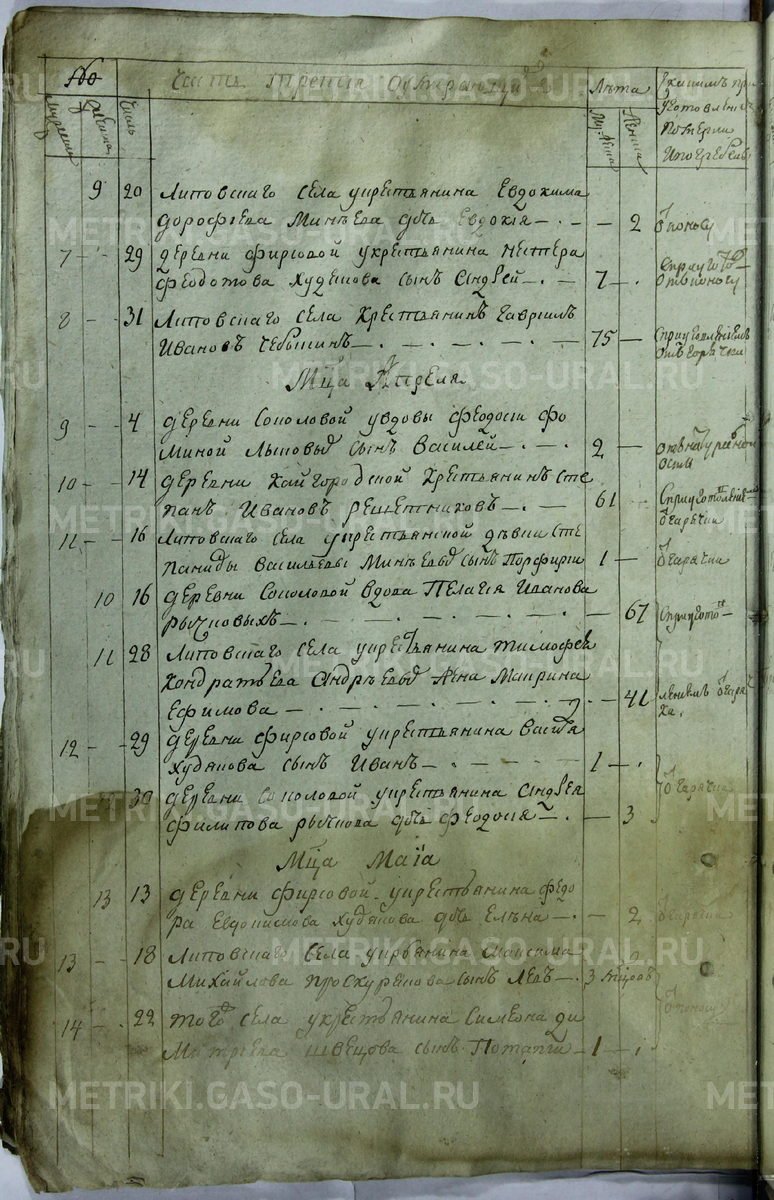 № Часть третия О умирающи Лѣта
мужеска женска Число Му: пола Женска
9 20 Липовскаго села укрестьянина Евдокима
Дорофѣева Минѣева дочь Евдокія — 2 Ѿ поносу
7 29 деревни Фирсовой укрестьянина Нестера
Феодотова Худякова сынъ Андрей — 7 Ѿ поносу
8 31 Липовскаго села Крестьянинъ Гавриилъ
Ивановъ Чебыкинъ — 75
Мца Апреля
9 4 деревни Соколовой увдовы Феодосiи Фо
миной сынъ Василей — 2
10 14 деревни Кайгородской Крестьянинъ Сте
панъ Ивановъ Решетниковъ — 61 Ѿ гарячки
11 16 Липовскаго села укрестьянской дѣвки Сте
паниды Васильевы Минѣевы сынъ Порфирiй 1 Ѿ гарячки
10 16 деревни Соколовой вдова Пелагiя Иванова
Рычковыхъ — 67
11 28 Липовскаго села укрестьянина Тимофея
Кондратьева Андрѣева жена Маирина
Ефимова — 41
12 29 деревни Фирсовой укрестьянина
Худякова сынъ Иванъ — 1
30 деревни Соколовой укрестьянина Андрея
Филипова Рычкова дочь Феодосiя — 3 Ѿ гарячки
Мца Маiа
13 13 деревни Фирсовой укрестьянина Федо
ра Евдокимова Худякова дочь Елѣна — 2 Ѿ гарячки
13 18 Липовскаго села Максима
Михайлова Проскурякова сынъ Левъ — 3 мцовъ
14 22 того села укрестьянина Симеона Ди
митрiева Швецова сынъ Потапiй — 1 Ѿ поносу
METRIKI.GASO-URAL.RU